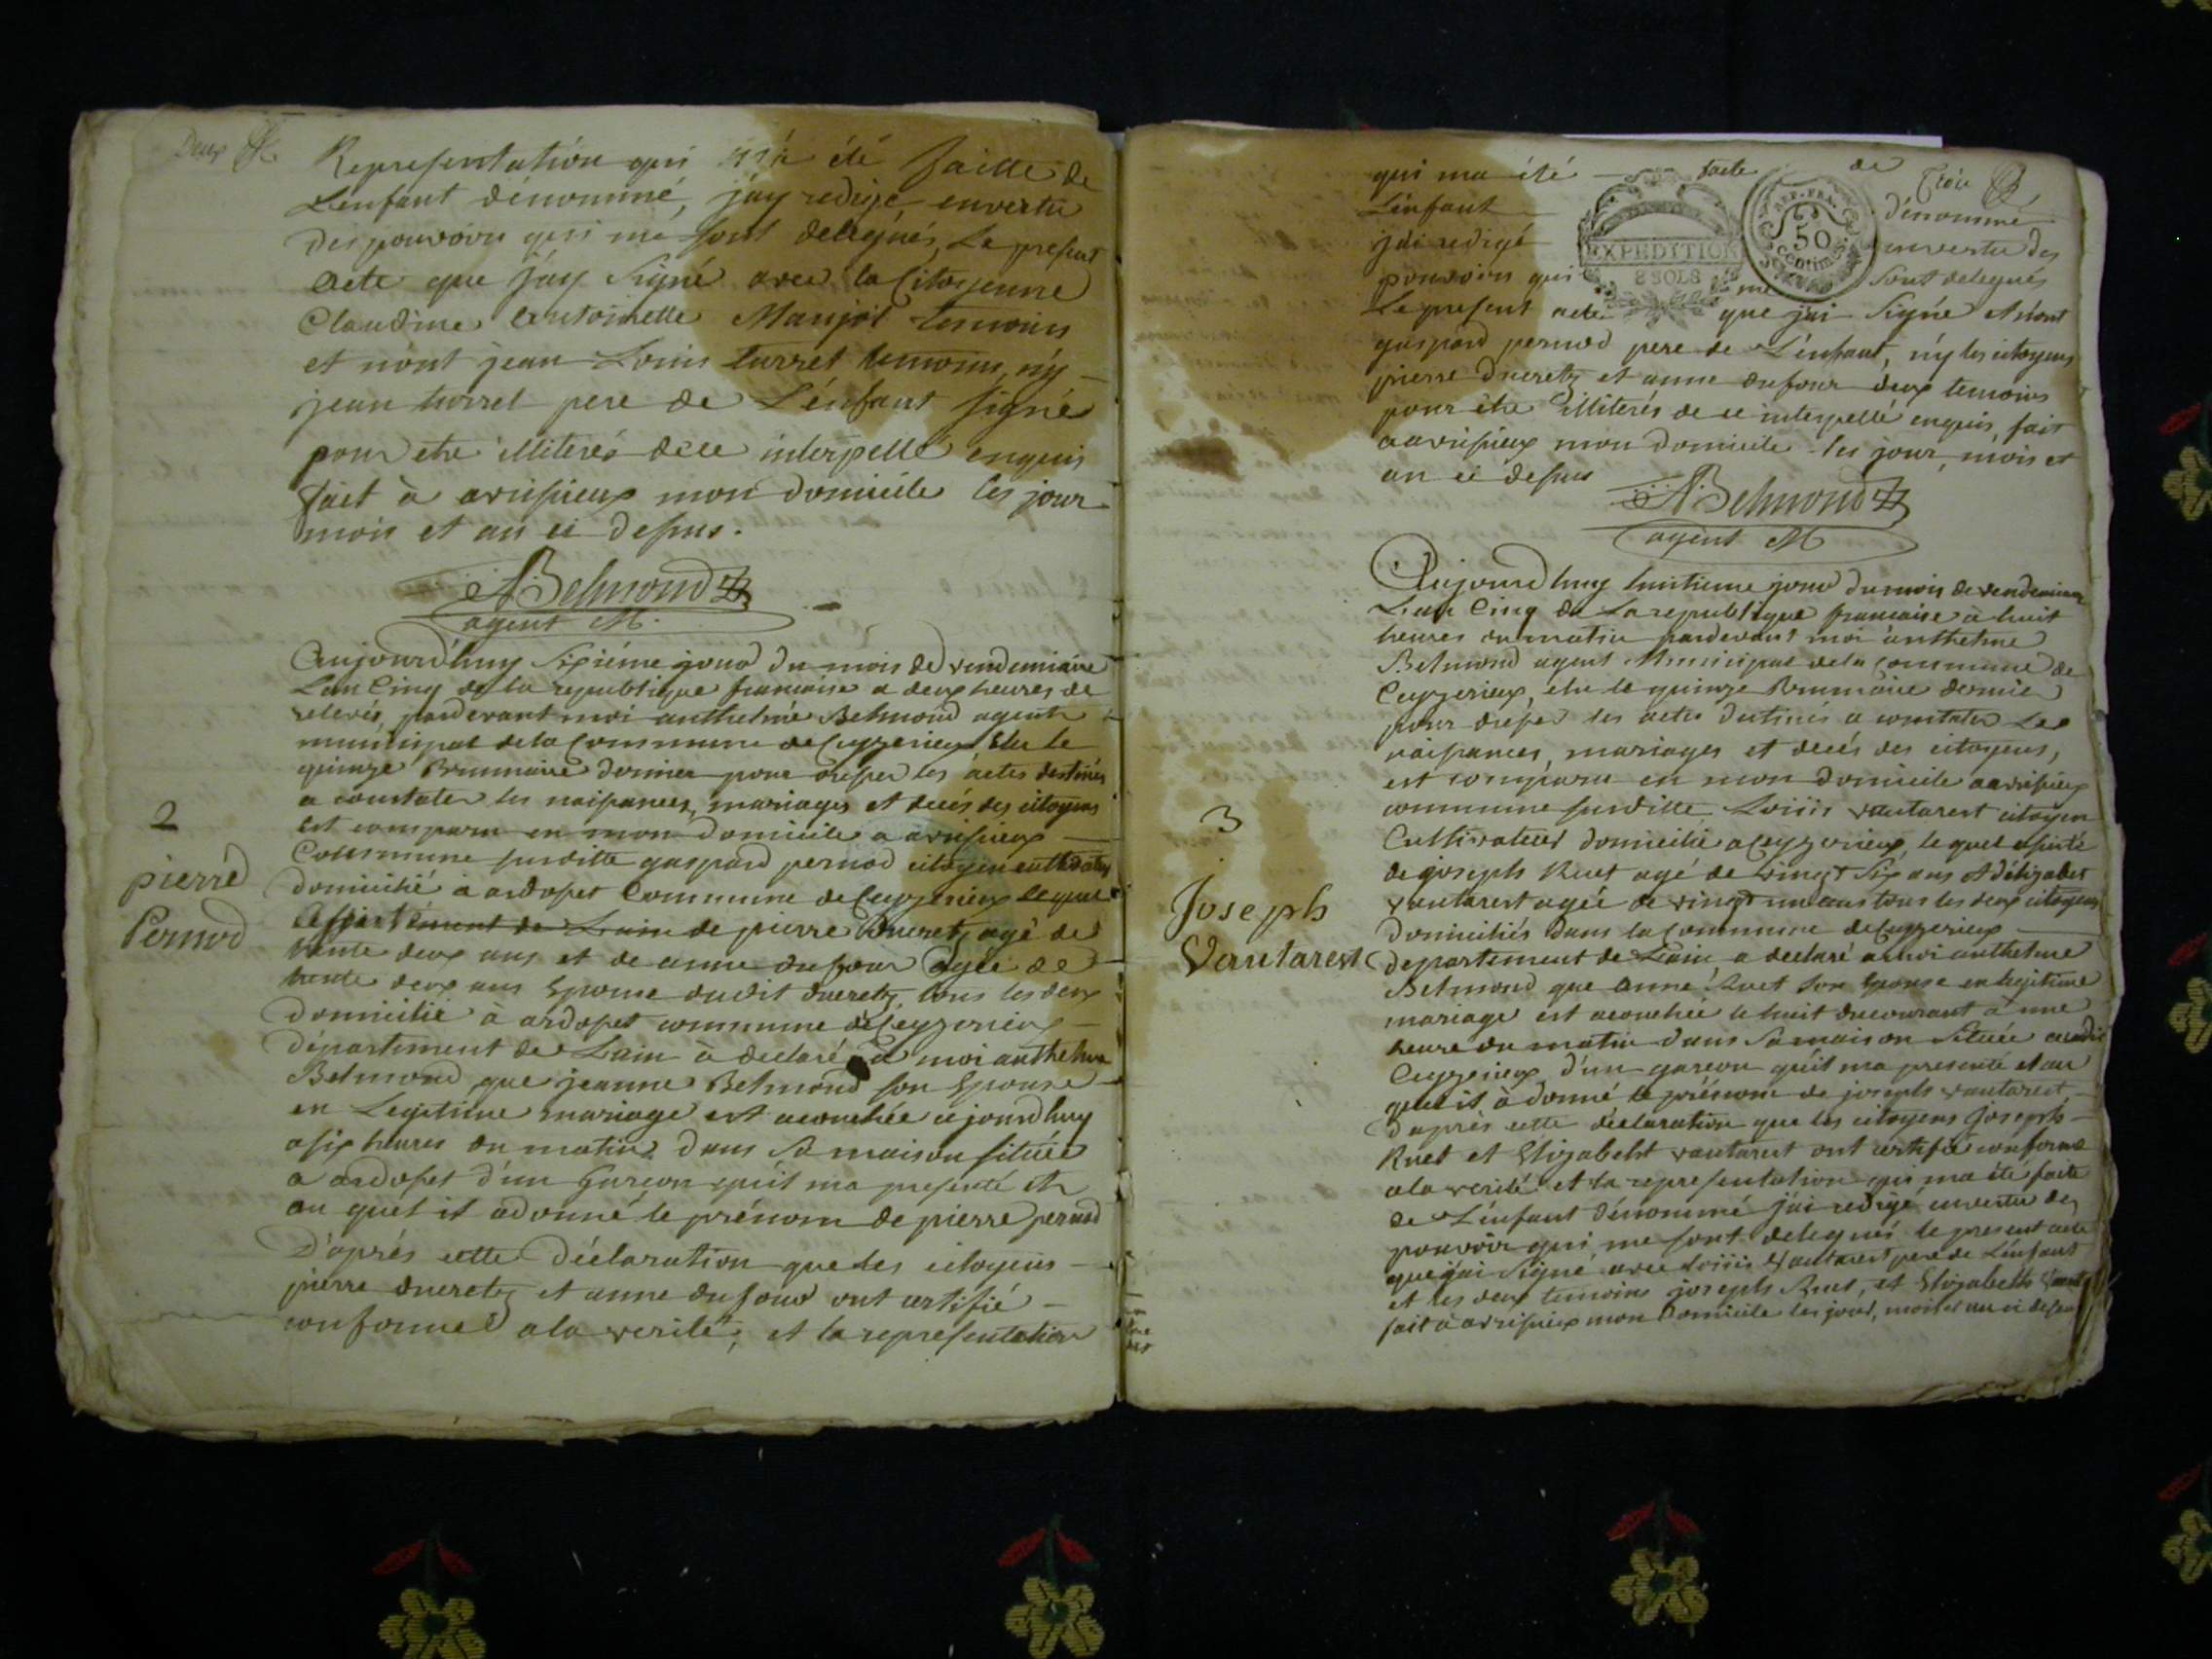 Deux
Representation qui m'a été faitte de
L'enfant dénommé, j'ay redigé envertu
des pouvoirs qui me sont delegués, Le present
acte que j'ay signé avec la Citoyenne
Claudine antoinette Manjot temoins
et n'ont jean Louis turrel temoins, n'y
jean turrel pere de L'énfant signé
pour etre illiterés de ce interpellé enquis
fait à avrissieux mon domicile les jour
mois et an ci dessus.
ABelmond
agent M.
Aujourd'huy sixiéme jour du mois de vendemiaire
L'an Cinq de la republique francaise a deux heures de
relevés, pardevant moi anthelme Belmond agent
municipal dela Commune de Ceyzerieux Elu le
quinze Brumaire dernier pour dresser les actes destinés
a constater les naissances, mariages et decés des citoyens
est comparu en mon domicile a avrissieux
Commune susditte gaspard pernod citoyen cultivateur
domicilié à ardosset Commune de Ceyzerieux lequel
assisté de pierre ducretz agé de
trente deux ans et de anne dufour agée de
trente deux ans Epouse dudit ducretz, tous les deux
domicilié à ardosset commune de Ceyzerieux
département de L'ain à declaré à moi anthelme
Belmond que jeanne Belmond son Epouse
en Legitime mariage est acouchée cejourd'huy
a six heures du matin dans sa maison située
a ardosset d'un Garcon qu'il m'a presenté et
au quel il a donné le prénom de pierre pernod
D'aprés cette déclaration que les citoyens
pierre ducretz et anne dufour ont certifié
conforme a la verité, et la representation
2
pierre
Pernod
qui ma été faite de
Trois
L'énfant dénommé
j'ai redigé envertu des
pouvoirs qui me sont delegués
Le present acte que j'ai signé et n'ont
gaspard pernod pere de L'énfant, n'y les citoyens
pierre ducretz et anne dufour deux temoins
pour être illiterés de ce interpellé enquis, fait
a avrissieux mon domicile les jour, mois et
an ci dessus
EXPEDITION
8 SOLS
REP. FRA.
50
Centimes
ABelmond
agent M
Aujourd'huy huitieme jour du mois de vendemiaire
L'an Cinq de La republique francaise à huit
heures du matin pardevant moi anthelme
Belmond agent Municipal dela Commune de
Ceyzerieux, elu le quinze Brumaire dernier
pour dresser les actes destinés a constater Les
naissances, mariages et decés des citoyens,
est comparu en mon domicile a avrissieux
commune susditte Loüis vautarest citoyen
Cultivateur domicilié a Ceyzerieux, le quel assisté
de joseph Ruet agé de vingt six ans et d'élizabet
vautarest agée de vingt un ans tous les deux citoyens
domiciliés dans la Commune de Ceyzerieux
departement de L'ain, a declaré a moi anthelme
Belmond que anne Ruet son Epouse en legitime
mariage est acouchée le huit du courant à une
heure du matin dans sa maison située audit
Ceyzerieux d'un garcon qu'il m'a presenté et au
quel il à donné le prénom de joseph vautarest
D'aprés cette déclaration que les citoyens Joseph
Ruet et Elizabeht vautarest ont certifié conforme
a la verité et la representation qui ma été faite
de L'énfant dénommé j'ai redigé envertu des
pouvoir qui me sont delegués le present acte
que j'ai signé avec Loüis Vautarest pere de L'énfant
et les deux temoins joseph Ruet, et Elizabeth Vaut
fait à avrissieux mon Domicile les jour, mois et an ci dessus
3
Joseph
Vautarest